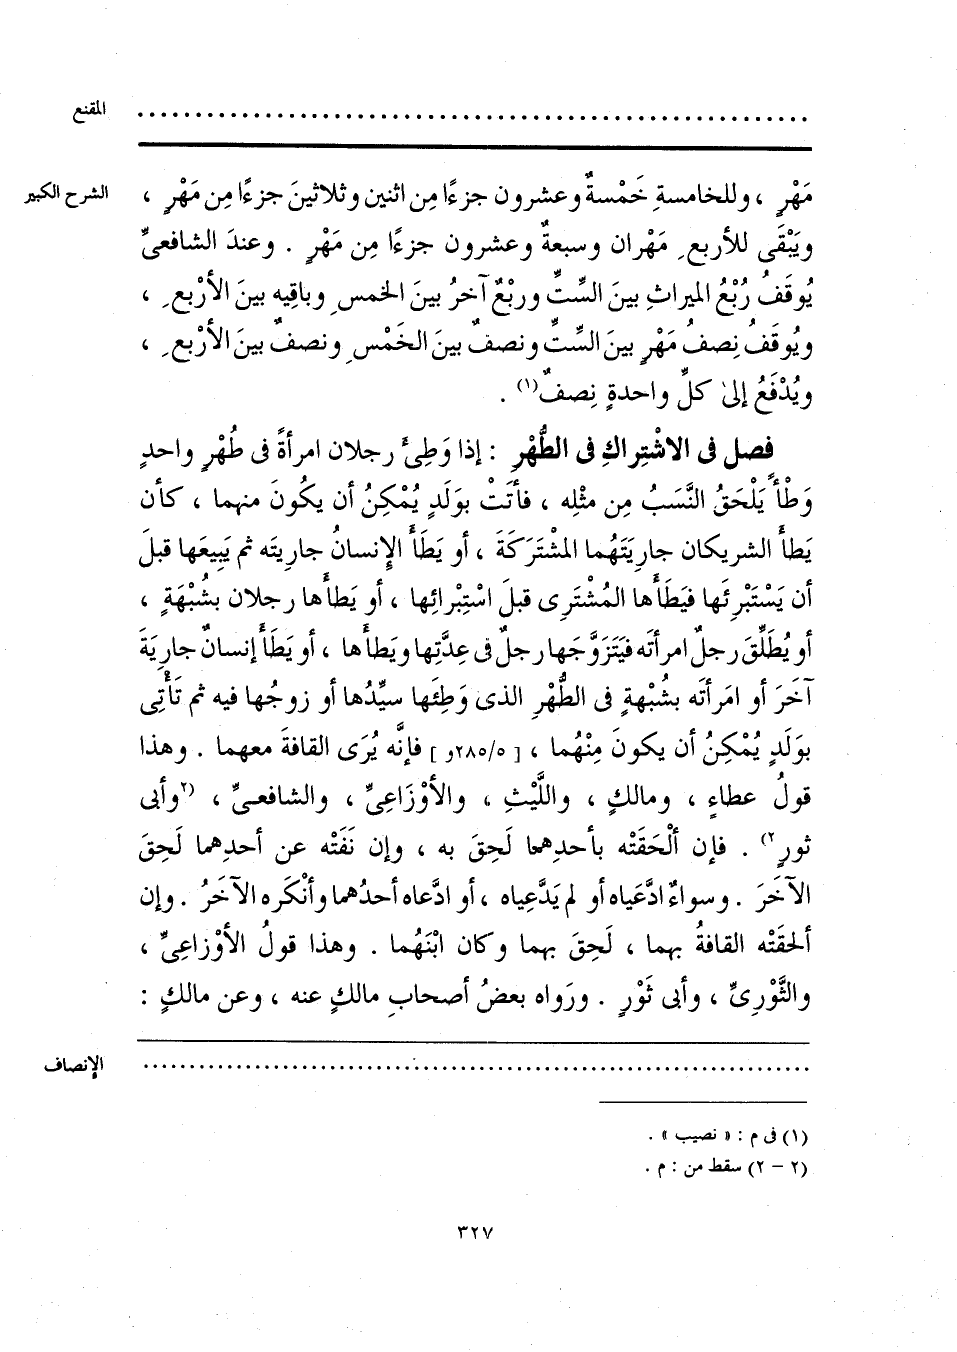 المقنع
الشرح الكبير
مَهْرٍ ، وللخامسةِ خَمْسةٌ وعشرون جزءًا مِن اثنين وثلاثينَ جزءًا مِن مَهْرٍ ،
ويَبْقَى للأربعِ مَهْران وسبعةٌ وعشرون جزءًا مِن مَهْرٍ . وعندَ الشافعىِّ
يُوقَفُ رُبْعُ الميراثِ بينَ السِّتِّ وربْعٌ آخرُ بينَ الخمسِ وباقِيه بينَ الأرْبعِ ،
ويُوقَفُ نِصفُ مَهْرٍ بينَ السِّتِّ ونصفٌ بينَ الخَمْسِ ونصفٌ بينَ الأرْبعِ ،
ويُدْفَعُ إلىٰ كلِّ واحدةٍ نِصفٌ(١) .
فصل فى الاشْتِراكِ فى الطُّهْرِ : إذا وَطِئَ رجلان امرأةً فى طُهْرٍ واحدٍ
وَطْأً يَلْحَقُ النَّسَبُ مِن مثْلِه ، فأتَتْ بوَلَدٍ يُمْكِنُ أن يكُونَ منهما ، كأن
يَطأَ الشريكان جارِيَتَهُما المشْتَرَكَةَ ، أو يَطَأَ الإنسانُ جاريتَه ثم يَبِيعَها قبلَ
أن يَسْتَبْرِئَها فيَطَأَها المُشْتَرِى قبلَ اسْتِبْرائِها ، أو يَطأَها رجلان بشُبْهَةٍ ،
أو يُطَلِّقَ رجلٌ امرأتَه فيَتَزوَّجَها رجلٌ فى عِدَّتِها ويَطأَها ، أو يَطَأَ إنسانٌ جارِيَةَ
آخَرَ أو امَرأتَه بشُبْهةٍ فى الطُّهْرِ الذى وَطِئَها سيِّدُها أو زوجُها فيه ثم تَأْتِى
بوَلَدٍ يُمْكِنُ أن يكونَ مِنْهُما ، [ ٢٨٥/٥و ] فإنَّه يُرَى القافةَ معهما . وهذا
قولُ عطاءٍ ، ومالكٍ ، واللَّيْثِ ، والأوْزَاعِىِّ ، والشافعىِّ ، (٢وأبى
ثورٍ٢) . فإن ألْحَقَتْه بأحدِهما لَحِقَ به ، وإن نَفَتْه عن أحدِهما لَحِقَ
الآخَرَ . وسواءٌ ادَّعَياه أو لم يَدَّعِياه ، أو ادَّعاه أحدُهما وأنْكَره الآخَرُ . وإن
ألحقَتْه القافةُ بهما ، لَحِقَ بهما وكان ابْنَهُما . وهذا قولُ الأوْزاعِىِّ ،
والثَّوْرِىِّ ، وأبى ثَوْرٍ . ورَواه بعضُ أصحابِ مالكٍ عنه ، وعن مالكٍ :
الإنصاف
(١) فى م : « نصيب » .
(٢ – ٢) سقط من : م .
٣٢٧